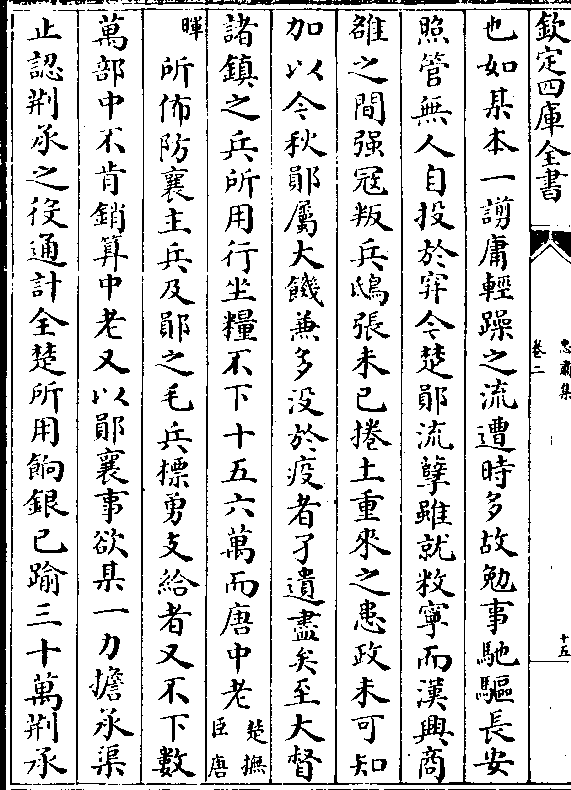 欽定四庫全書
忠肅集
卷二
十五
也如某本一謭庸輕躁之流遭時多故勉事馳驅長安
照管無人自投於穽今楚鄖流孽雖就敉寧而漢興商
雒之間强冦叛兵鴟張未已捲土重來之患政未可知
加以今秋鄖屬大饑兼多没於疫者孑遺盡矣至大督
諸鎮之兵所用行坐糧不下十五六萬而唐中老楚撫臣唐
暉所佈防襄主兵及鄖之毛兵摽勇支給者又不下數
萬部中不肯銷算中老又以鄖襄事欲某一力擔承渠
止認荆承之役通計全楚所用餉銀已踰三十萬荆承